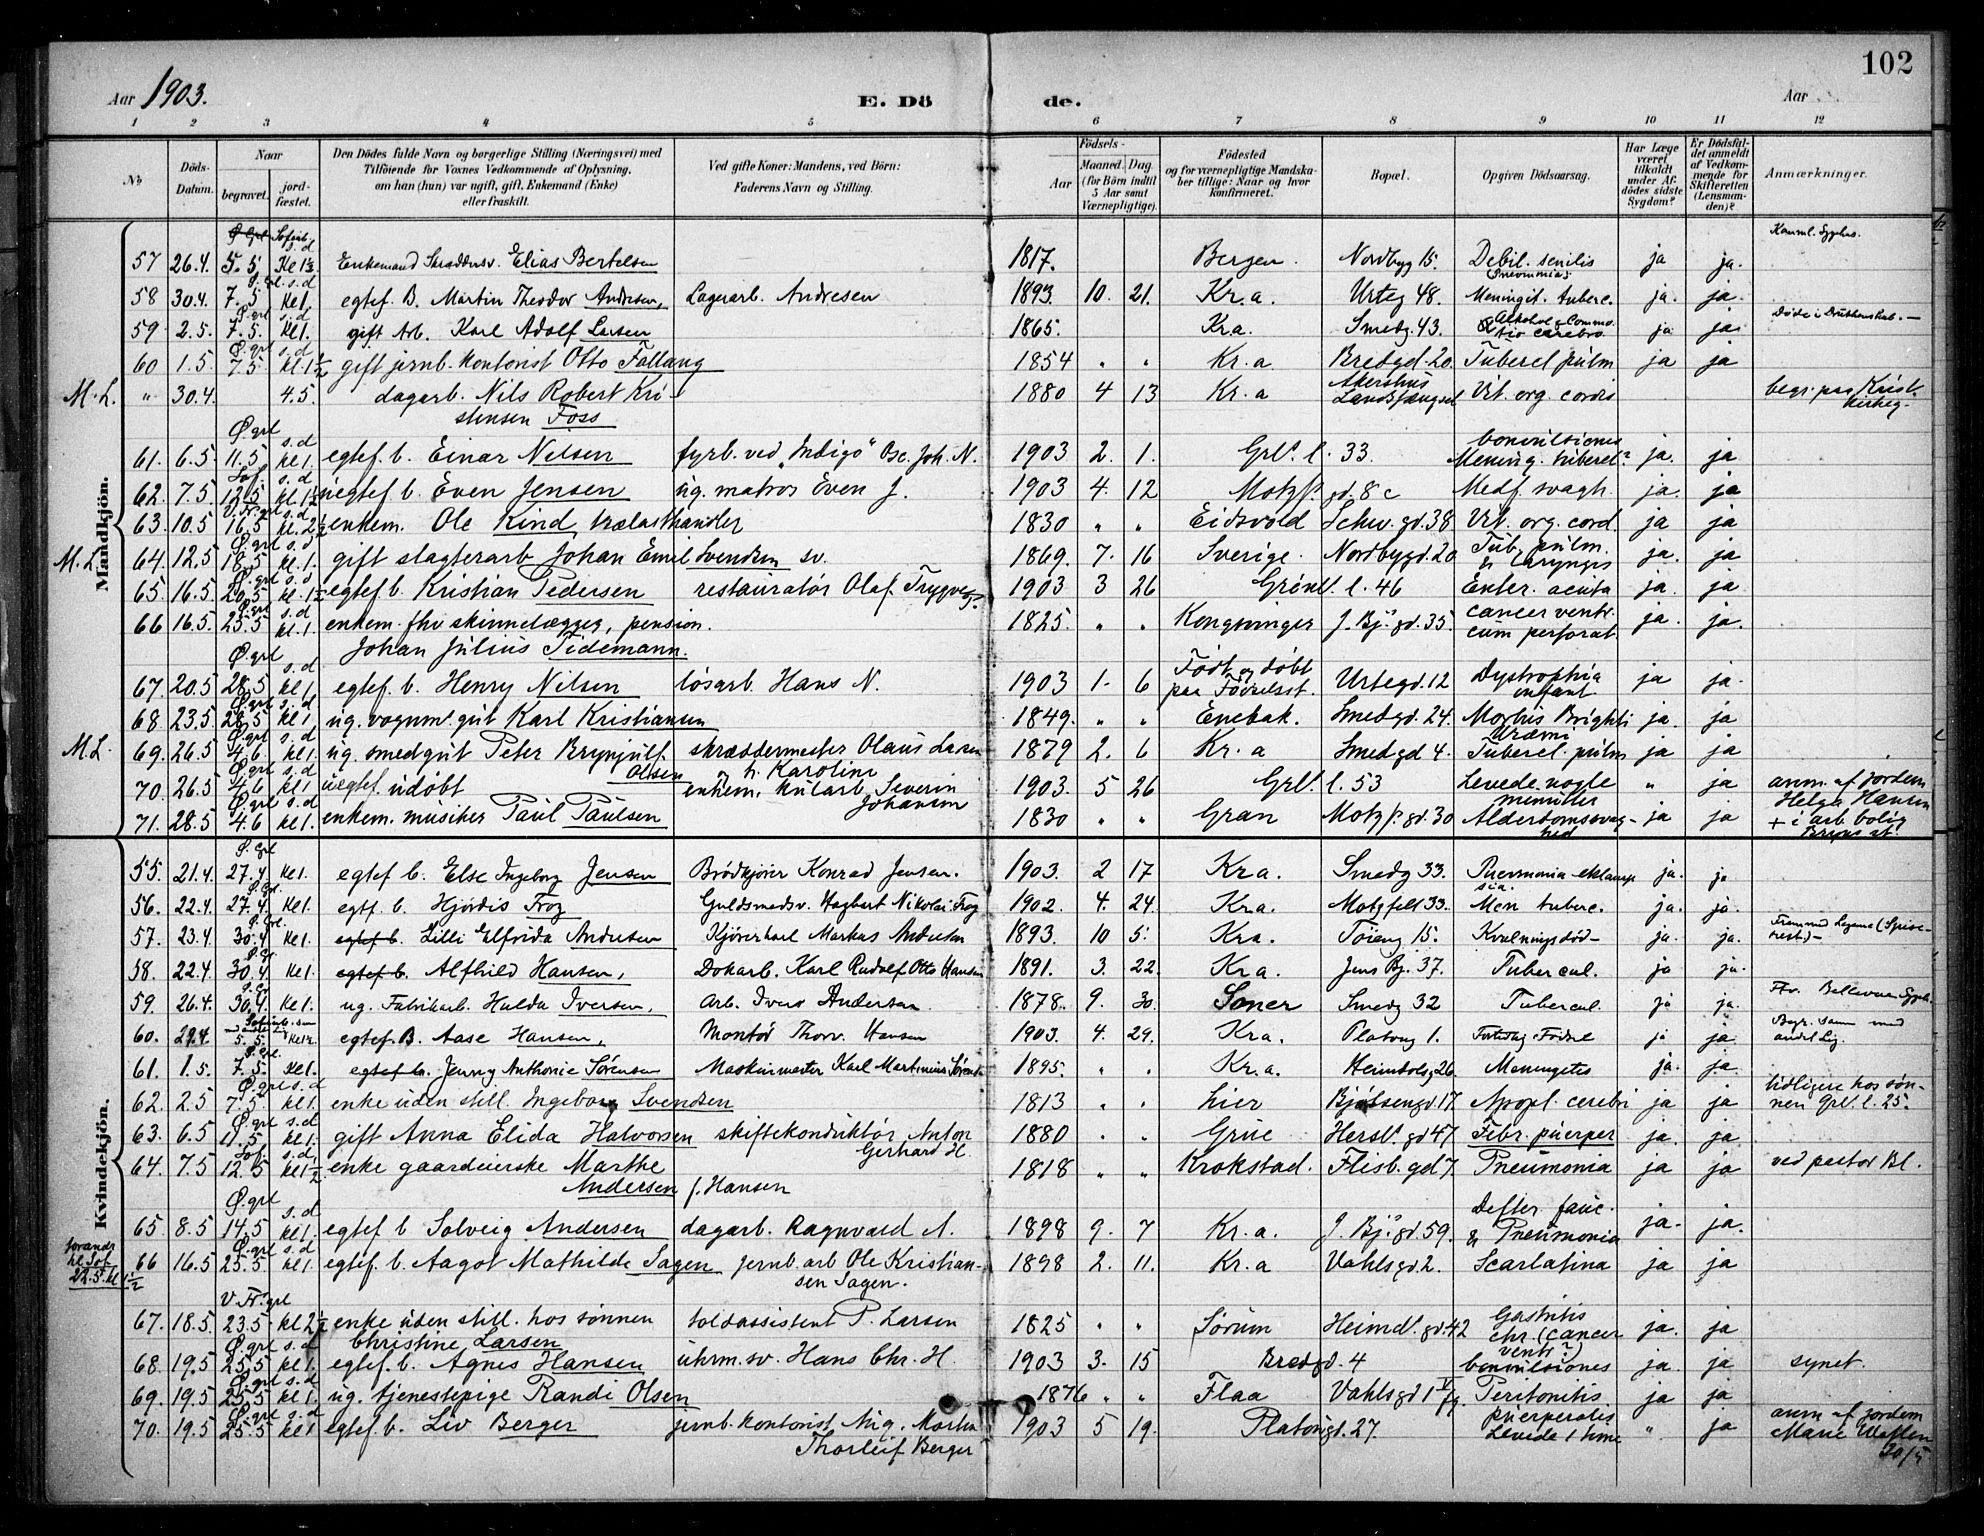 102
Aar 1903. E. Dö de. Aar
1 2 3 4 5 6 7 8 9 10 11 12
No Döds-Datum. Naar begravet. jord-fæstet. Den Dödes fulde Navn og borgerlige Stilling (Næringsvei) med Tilföiende for Voxnes Vedkommende af Oplysning. om han (hun) var ugift, gift, Enkemand (Enke) eller fraskilt. Ved gifte Koner: Mandens, ved Börn: Faderens Navn og Stilling. Födsels- Aar Maaned. Dag. (for Börn indtil 5 Aar samt Værnepligtige). Födested og for værnepligtige Mandskaber tillige: Naar og hvor konfirmeret. Bopæl. Opgiven Dödsaarsag. Har Læge været tilkaldt under Afdödes sidste Sygdom? Er Dödsfaldet anmeldt af Vedkommende for Skifteretten (Lensmanden)? Anmærkninger.
Mandkjön.
57 26.4. 5.5. Kl 1½ Enkemand Skræddersv. Elias Bertelsen 1817. Bergen. Nordbyg 15. Debil. senilis ja ja.
58 30.4. 7.5 Kl 1. egtef. B. Martin Theodor Andresen, Lagerarb. Andresen 1893. 10. 21. Kr.a. Urteg 48. Meningit. tuberc. ja. ja.
59 2.5. 7.5 Kl 1. gift Arb. Karl Adolf Larsen 1865. Kra. Smedg. 43. ja ja
60 1.5. 7.5. kl. 1½ gift jernb. kontorist Otto Fallang 1854 " " Kr.a. Bredgd. 20. Tubercl pulm ja ja
M.L. " 30.4. 4.5. dagarb. Nils Robert Kristensen Foss 1880 4 13 Kr.a Akershus Landsfængsel Vit. org. cordis begr. paa Krist. kirkeg.
61. 6.5 11.5 kl 1. egtef. b. Einar Nelsen fyrb. ved "Indigo" Osc. Joh. N. 1903 2. 1. Grl. l. 33. Convulsiones Mening. tubercl? ja. ja
62. 7.5 12.5 kl 1½ uegtef. b. Even Jensen ug. matros Even J. 1903 4. 12 Motzf. gd. 8 c Medf. svagh. ja. ja
63. 10.5 16.5 kl. 2½ enkem. Ole Kind, trælasthandler 1830 " " Eidsvold Schw. gd. 38 Vit. org. cord. ja ja
M.L. 64. 12.5 18.5 kl 1. gift slagterarb Johan Emil Svendsen sv. 1869. 7. 16 Sverige. Nordbygd. 20 Tub. pulm. & laryngis ja. ja
65. 16.5. 20.5 kl. 1½ egtef. b. Kristian Pedersen restauratør Olaf Trygve P. 1903 3 26 Grønl. l. 46 Enter. acuta ja. ja
66 16.5. 25.5 kl 1. enkem. fhv skinnelægger, pension. Johan Julius Tidemann. 1825. " " Kongsvinger J. Bj. gd. 35. Cancer ventr. cum perforat. ja. ja.
67. 20.5 28.5 kl 1. egtef. b. Henry Nilsen løsarb. Hans N. 1903 1. 6 Født og døbt paa Fødselsst. Urtegd. 12 Dystrophia infant. ja ja.
68. 23.5 28.5 kl 1. ug. vognm. gut Karl Kristiansen 1849. " " Enebak. Smedgd. 24. Morbus Brighti Uræmi ja. ja
M.L. 69. 26.5 4.6 kl 1. ug. smedgut Peter Brynjulf Olsen skræddermester Olaus Larsen h. Karoline 1879 2. 6 Kr. a Smedgd 4. Tubercl. pulm ja ja
70. 26.5 4.6 kl 1 uegtef. udøbt enkem. kularb. Severin Johansen 1903. 5 26 Grl. l. 53 Levede nogle minutter " ja anm. af jordem Helga Hansen
71. 28.5 4.6 kl 1. enkem. musiker Paul Paulsen 1830 " " Gran Motzf. gd. 30 Alderdomssvaghed ja ja + i arb. bolig
Kvindekjön.
55. 21.4. 27.4. Kl 1. egtef b. Else Ingeborg Jensen Brødkjører Konrad Jensen. 1903. 2 17 Kra. Smedg 33. Pnevmonia eklampsia. ja. ja
56. 22.4. 27.4. Kl 1. egtf. b. Hjørdis Frog Guldsmedsv. Hagbart Nikolai Frog 1902. 4. 24. Kra. Motzfelt 33. Men tuberc. ja. ja.
57. 23.4. 30.4 Kl 1. egtef b. Lilli Elfrida Andersen Kjørerkarl Markus Andersen 1893. 10 5. Kra. Tøieng 15. Kvælningsdød ja. ja.
58. 22.4. 30.4. Kl 1. egtef b. Alfhild Hansen, Dokarb. Karl Rudolf Otto Hansen 1891. 3. 22. Kra. Jens Bj. 37. Tubercul. ja ja.
59. 26.4. 30.4. Kl 1. ug. Fabrikarb. Hulda Iversen, Arb. Iver Andersen 1878. 9. 30. Soner Smedg 32 Tubercul. ja ja. Bellevue Sygeh.
60. 29.4. 5.5. egtef. B. Aase Hansen, Montør Thorv. Hansen 1903. 4. 29. Kra. Platoug 1. Fortidlig Fødsel ja ja Begr. sam. med andet Lig.
61. 1.5. 7.5. Kl 1. egtef b. Jenny Anthonie Sørensen Maskinmester Karl Martinius Sørensen 1895. " " Kr.a. Heimdalsg 26. Meningetis ja. ja.
62. 2.5 7.5. kl 1. enke uden still. Ingeborg Svendsen 1813 " " Lier Bjølsengd 17. Apopl. cerebri ja ja tidligere hos sønnen Grl. l. 25.
63. 6.5 11.5 kl 1. gift Anna Elida Halvorsen skiftekonduktør Anton Gerhard H. 1880 " " Grue Hersl. gd 47. Febr. puerper ja. ja.
64. 7.5 12.5 kl 1½ enke gaardeierske Marthe Andersen f. Hansen 1818 " " Krokstad. Flisb. gd 7. Pneumonia ja ja ved pastor Bl.
65. 8.5 14.5 kl 1. egtef b Solveig Andersen dagarb. Ragnvald A. 1898 9. 7 Kr.a. J. Bj. gd. 59. Defter. fauc. & Pneumonia ja. ja.
22.5. kl 1½ 66 16.5 25.5 kl 1. egtef. b. Aagot Mathilde Sagen jernb. arb Ole Kristiansen Sagen. 1898 2. 11. Kr.a Vahlsgd. 2. Scarlatina ja ja
67. 18.5. 23.5 kl 2½ enke uden still. hos sønnen Christine Larsen toldassistent P. Larsen 1825 " " Sørum Heimdl. gd. 42 Gastritis chr. (cancer ventr?) ja. ja
68. 19.5 25.5 kl 1. egtef. b. Agnes Hansen uhrm. sv. Hans Chr. H. 1903 3. 15 Bredgd. 4 Convulsiones ja. ja synet.
69. 19.5 25.5 kl 1. ug. tjenestepige Randi Olsen 1876 " " Flaa Vahlsgd 1 Peritonitis puerperalis ja ja
70. 19.5 25.5 kl 1 egtef. b. Liv Berger jernb. kontorist Aug. Martin Thorleif Berger 1903 5 19. Platougd. 27. Levede 1 time " ja anm. af jordem Marie 20/5